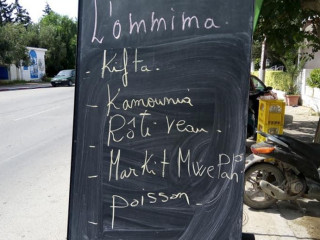 L'ommima.
- Kifta.
- Kamounia
Rôti veau.
- Markit Mwe
- poisson.